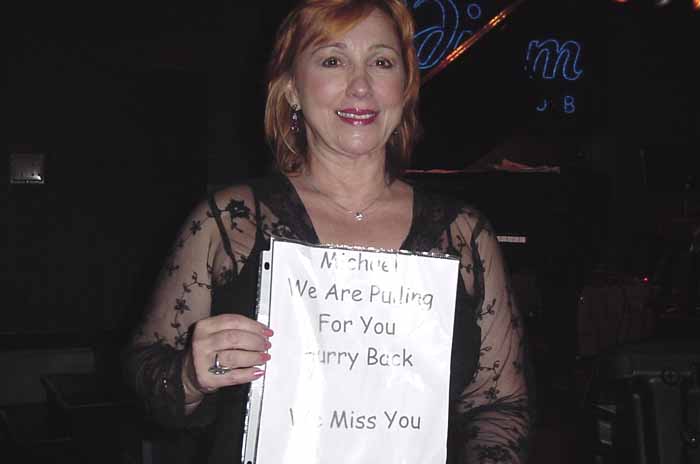 Michael
We Are Pulling
For You
Hurry Back
We Miss You